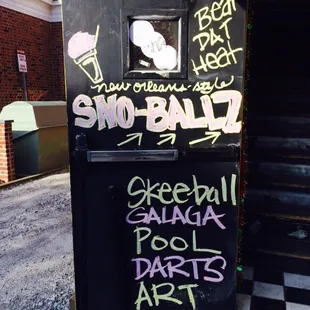 BEAT
DAT
HEAT
new orleans-style
SNO-BALLZ
Skeeball
GALAGA
Pool
DARTS
ART